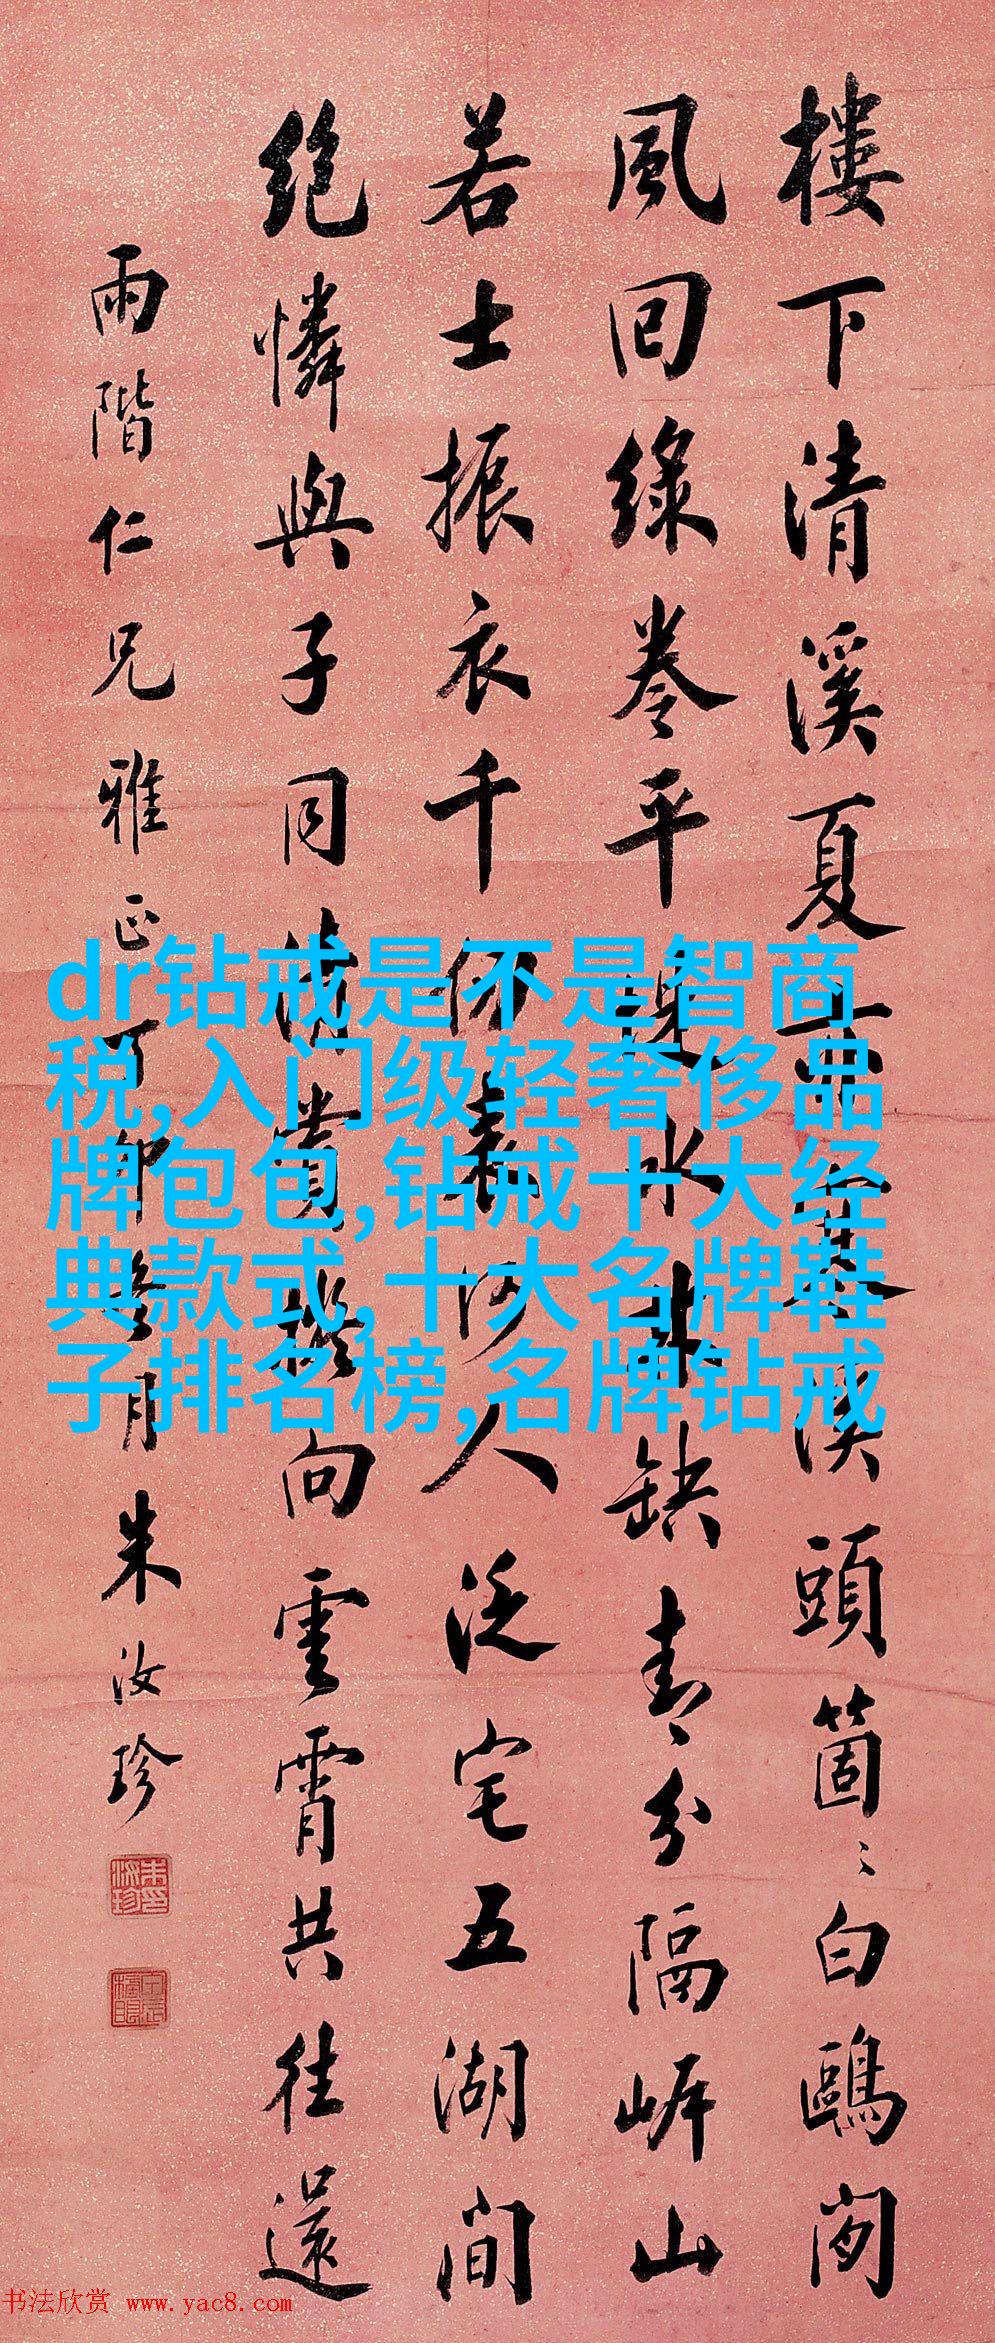 樓下清溪夏亦寒溪頭箇〻白鷗閑
風回綠卷平堤水林缺青分隔岸山
若士振衣千仞裹何人泛宅五湖間
絕憐與子同清賞向雲霄共往還
雨階仁兄雅正丁卯月朱汝珍
dr钻戒是不是智商
税,入门级轻奢侈品
牌包包,钻戒十大经
典款式,十大名牌鞋
子排名榜,名牌钻戒
书法欣赏 www.yac8.com